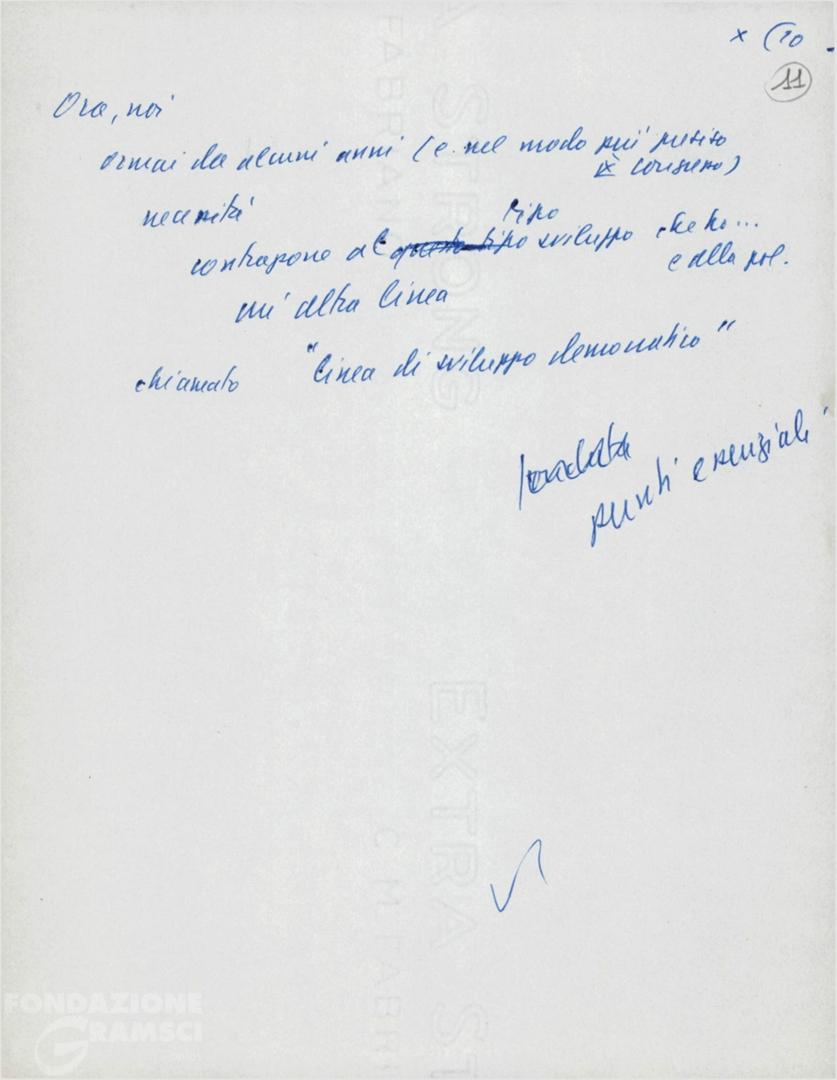 x (10
11
Ora, noi
ormai da alcuni anni (e nel modo più preciso
IX Congresso)
necessità
tipo
contrapone al questo tipo sviluppo che ho...
e alla pol.
un'altra linea
chiamato "linea di sviluppo democratico"
punti essenziali
A STRONG EXTRA ST
FABRIANO C M FABRI
FONDAZIONE
GRAMSCI